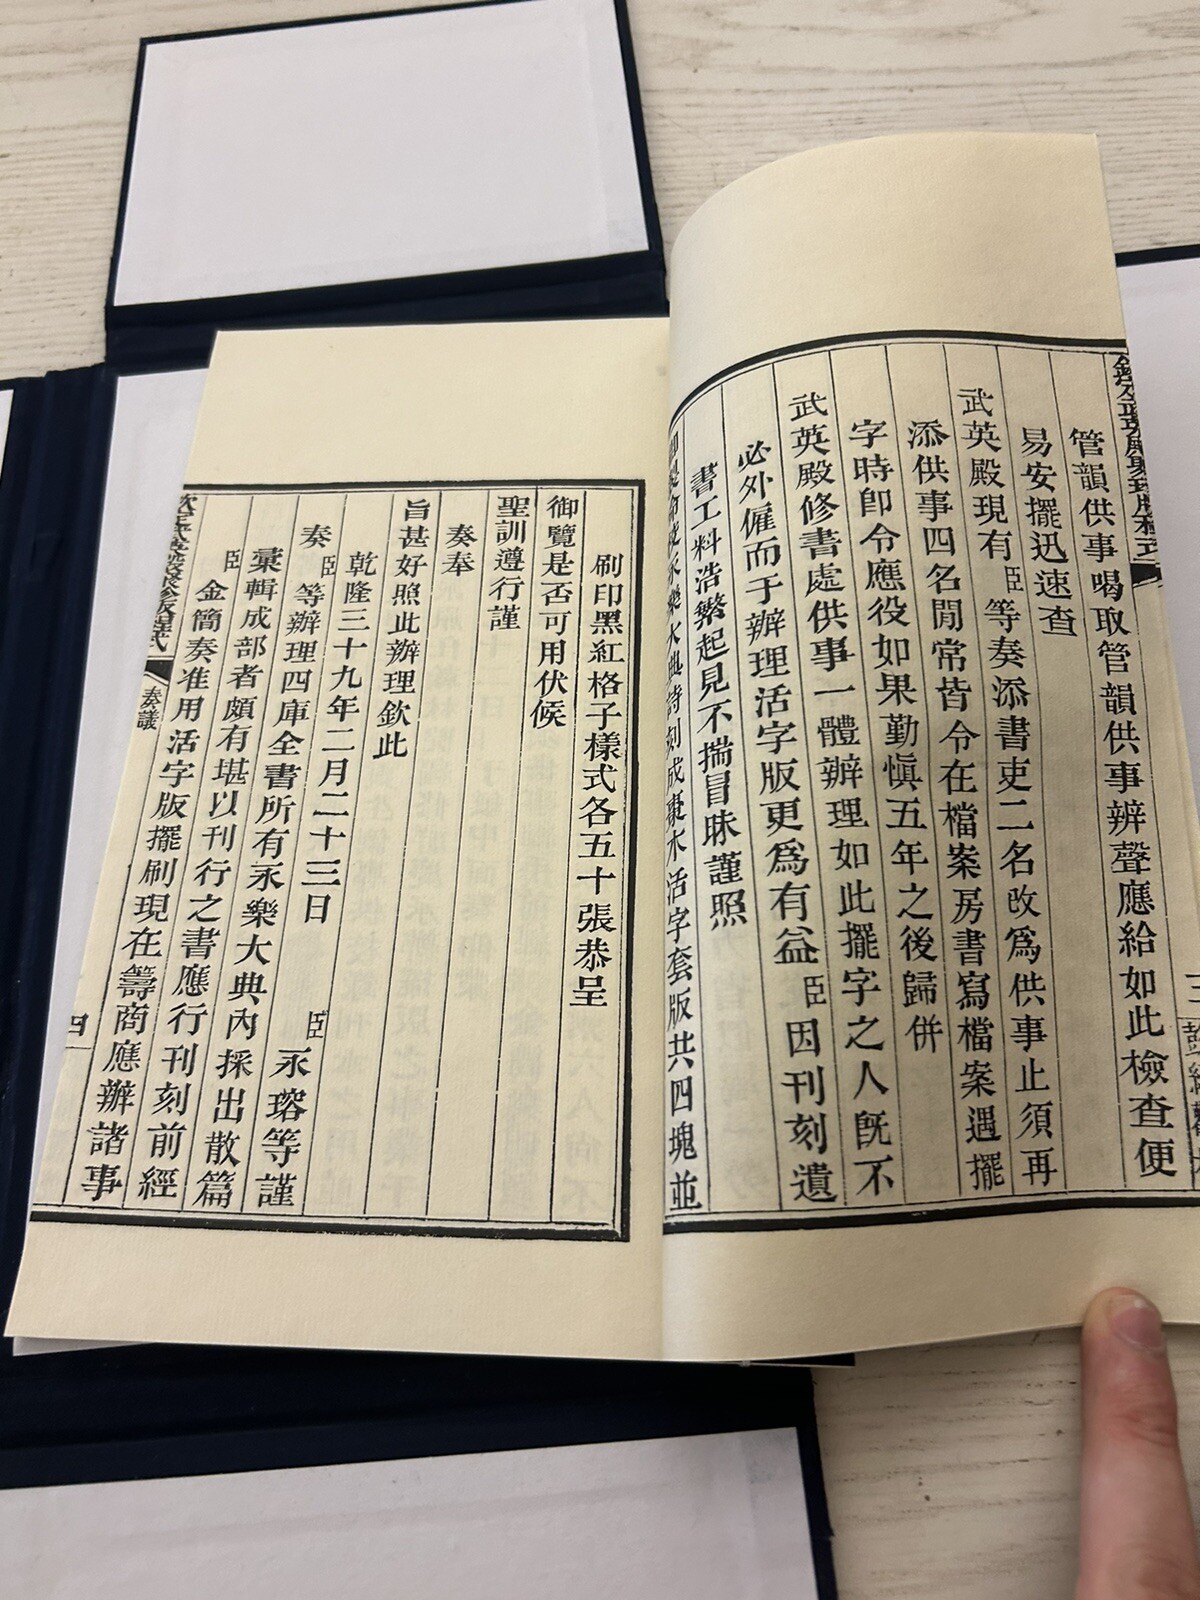 管韻供事喝取管韻供事辨聲應給如此檢查便
易安擺迅速查
武英殿現有臣等奏添書吏二名改爲供事止須再
添供事四名閒常皆令在檔案房書寫檔案遇擺
字時卽令應役如果勤愼五年之後歸併
武英殿修書處供事一體辦理如此擺字之人旣不
必外僱而于辦理活字版更爲有益臣因刊刻遺
書工料浩繁起見不揣冒昧謹照
御製命校永樂大典詩刻成棗木活字套版共四塊並
刷印黑紅格子樣式各五十張恭呈
御覽是否可用伏候
聖訓遵行謹
奏奉
旨甚好照此辦理欽此
乾隆三十九年二月二十三日 臣永瑢等謹
奏臣等辦理四庫全書所有永樂大典內採出散篇
彙輯成部者頗有堪以刊行之書應行刊刻前經
臣金簡奏准用活字版擺刷現在籌商應辦諸事
欽定武英殿聚珍版程式 奏議 四